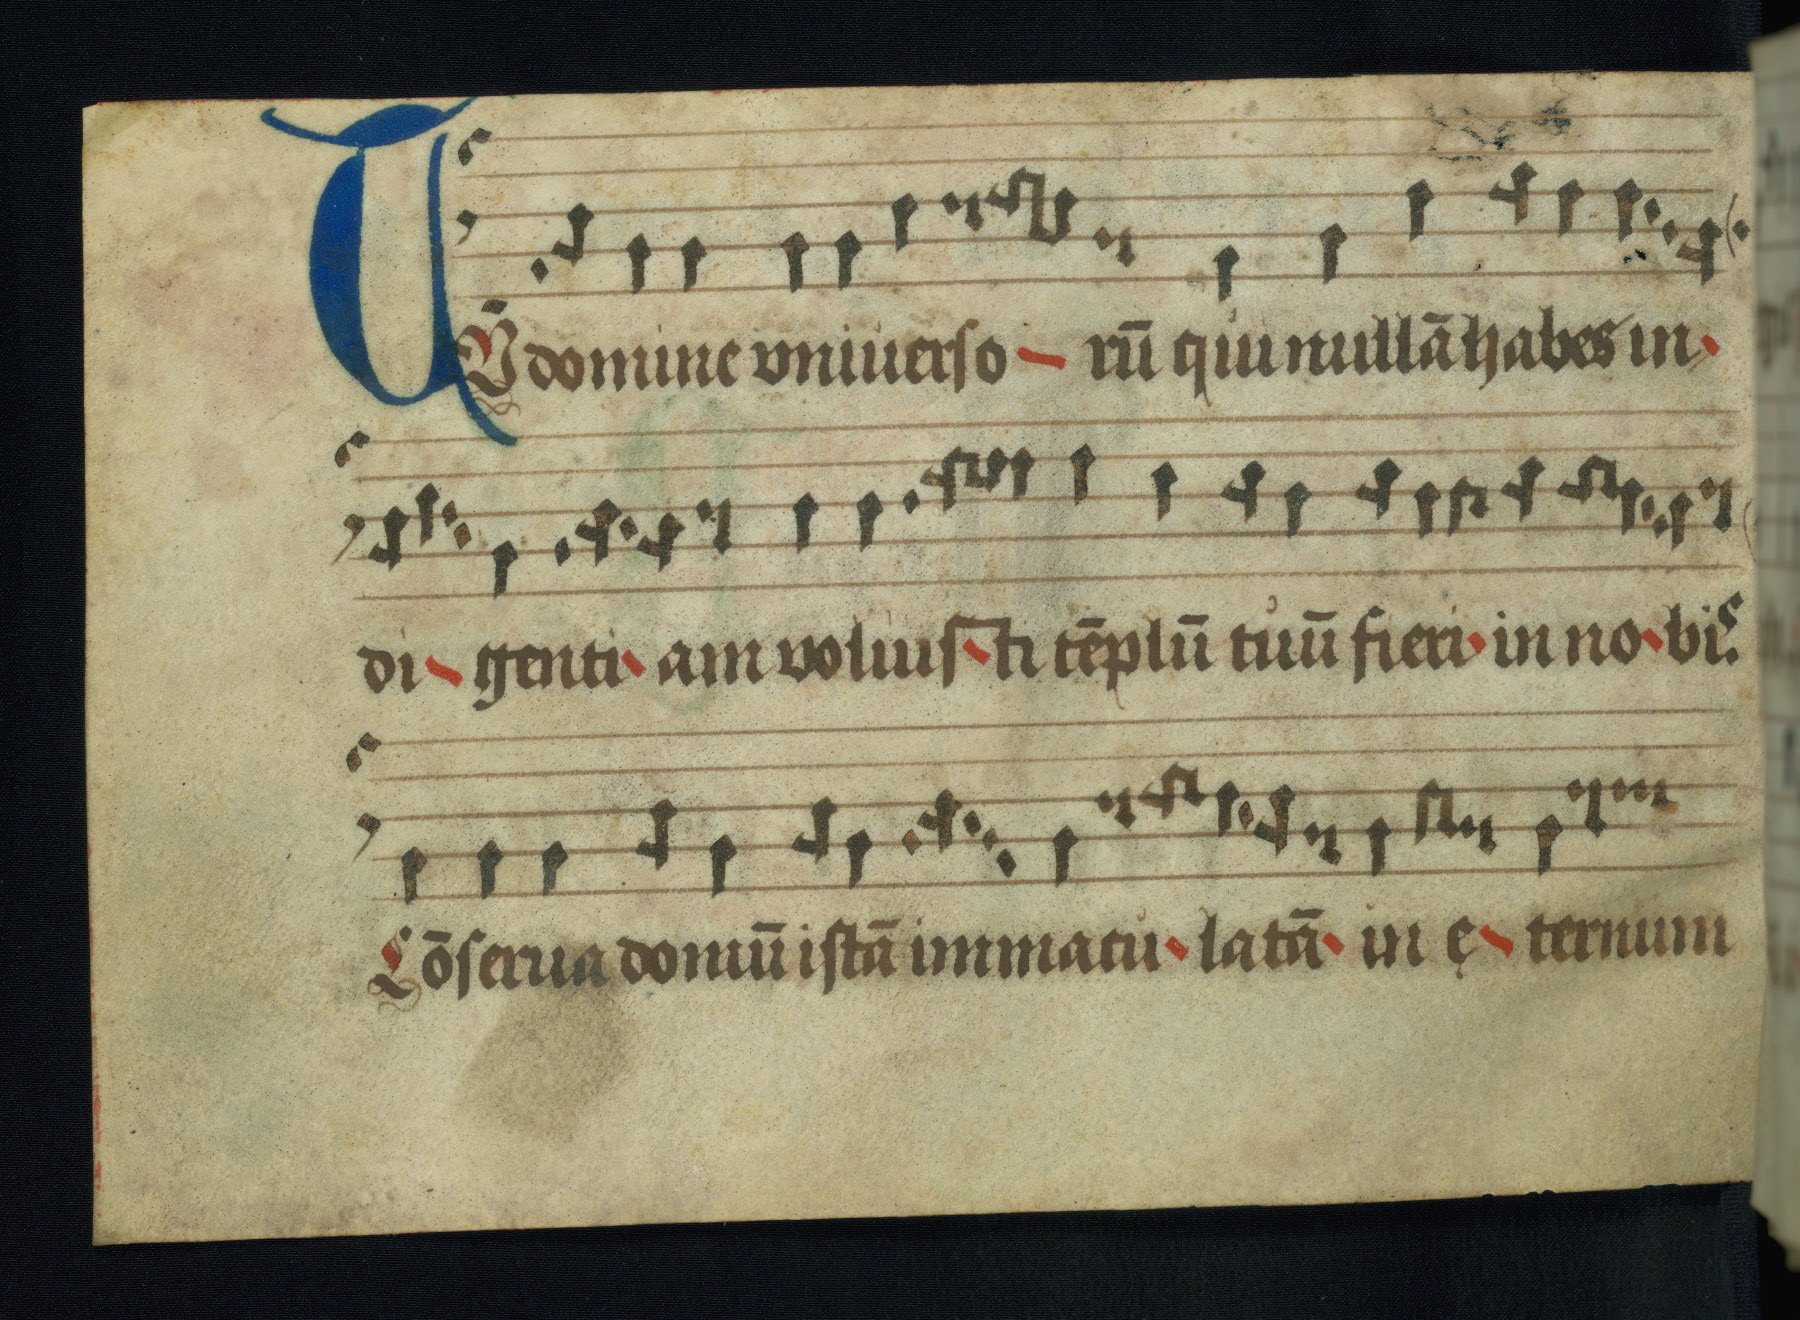 TV domine vniuerso - rū qui nullā habes in-
di - genti - am voluiſ - ti tēplū tuū fieri - in no - bis.
Cōſerua domū iſtā immacu - latā - in ę - ternum